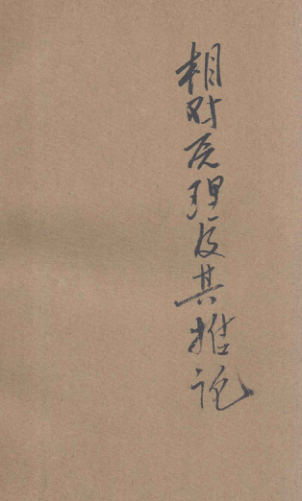 相对原理及其推论